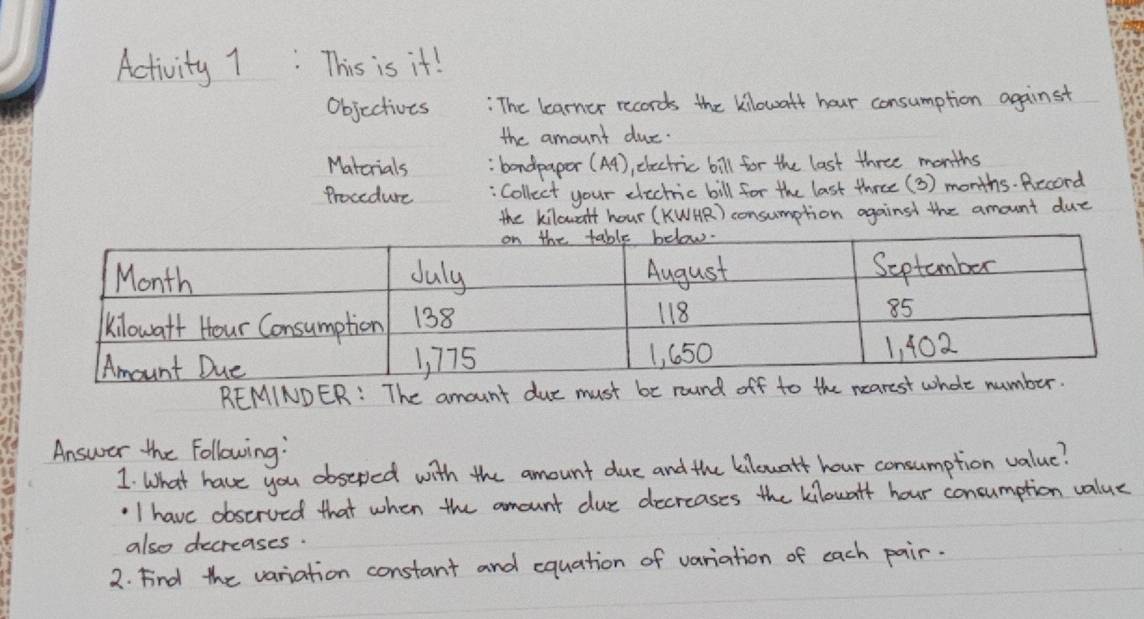 Activity 1 : This is it!
Objectives : The learner records the kilowatt hour consumption against
the amount due.
Materials : bondpaper (A4), electric bill for the last three months
Procedure : Collect your electric bill for the last three (3) months. Record
the kilowatt hour (KWHR) consumption against the amount due
on the table below.
Month July August September
Kilowatt Hour Consumption 138 118 85
Amount Due 1,775 1,650 1,402
REMINDER: The amount due must be round off to the nearest whole number.
Answer the Following:
1. What have you obseped with the amount due and the kilowatt hour consumption value?
• I have observed that when the amount due decreases the kilowatt hour consumption value
also decreases.
2. Find the variation constant and equation of variation of each pair.